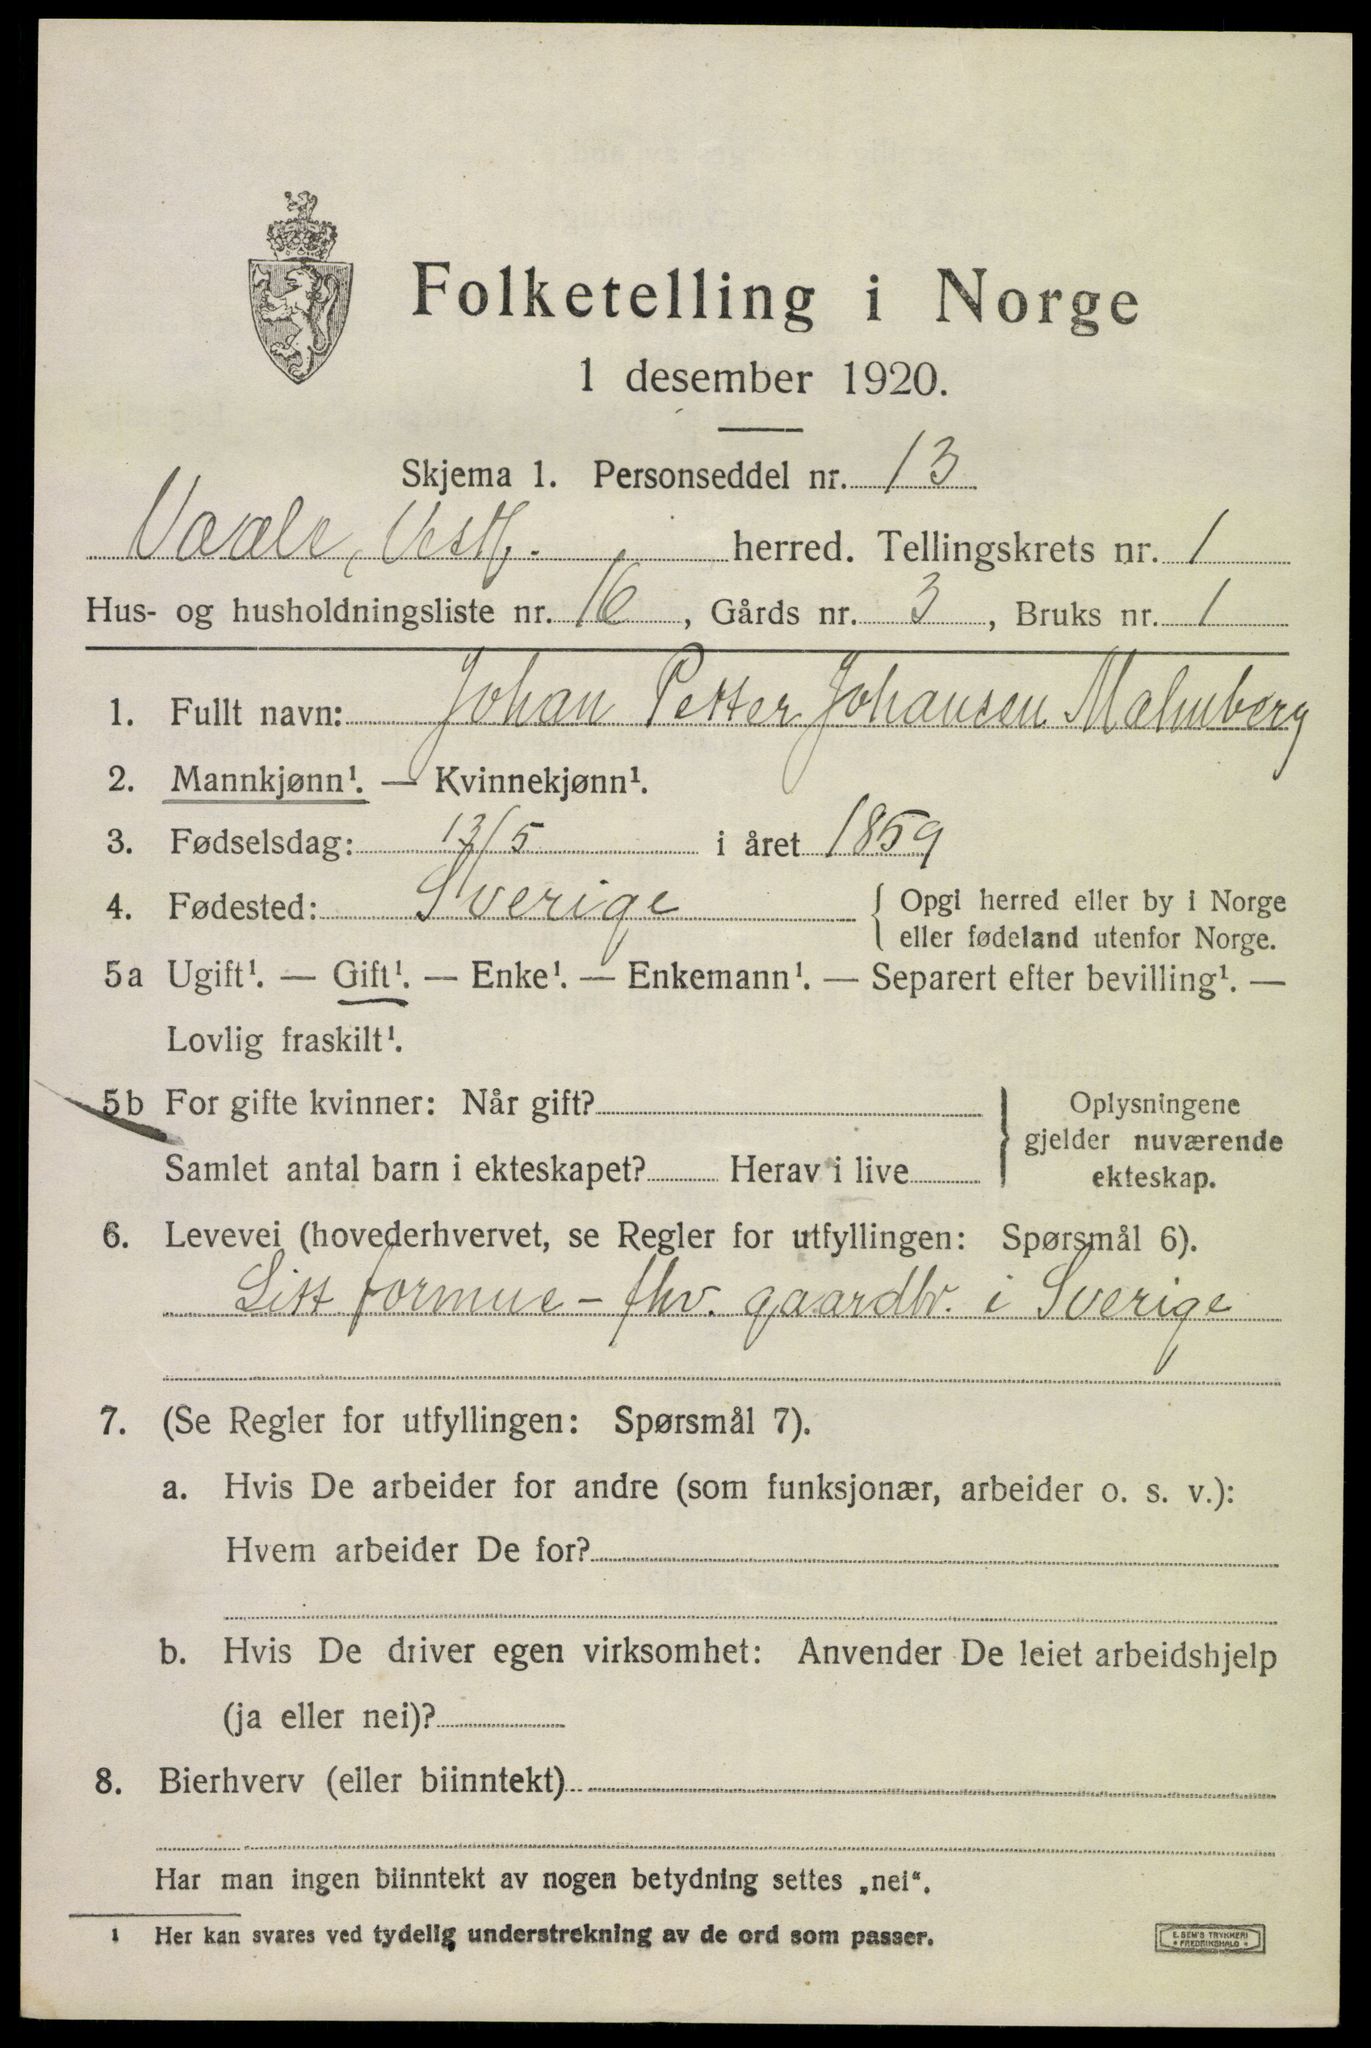 Folketelling i Norge
1 desember 1920.
Skjema 1. Personseddel nr. 13
Vaale, Vestf. herred. Tellingskrets nr. 1
Hus- og husholdningsliste nr. 16, Gårds nr. 3, Bruks nr. 1
1. Fullt navn: Johan Petter Johansen Malmberg
2. Mannkjønn¹. — Kvinnekjønn¹.
3. Fødselsdag: 13/5 i året 1859
4. Fødested: Sverige { Opgi herred eller by i Norge
eller fødeland utenfor Norge.
5a Ugift¹. — Gift¹. — Enke¹. — Enkemann¹. — Separert efter bevilling¹. —
Lovlig fraskilt¹.
5b For gifte kvinner: Når gift? } Oplysningene
gjelder nuværende
Samlet antal barn i ekteskapet? Herav i live ekteskap.
6. Levevei (hovederhvervet, se Regler for utfyllingen: Spørsmål 6).
Litt formue – fhv. gaardbr. i Sverige
7. (Se Regler for utfyllingen: Spørsmål 7).
a. Hvis De arbeider for andre (som funksjonær, arbeider o. s. v.):
Hvem arbeider De for?
b. Hvis De driver egen virksomhet: Anvender De leiet arbeidshjelp
(ja eller nei)?
8. Bierhverv (eller biinntekt)
Har man ingen biinntekt av nogen betydning settes „nei“.
¹ Her kan svares ved tydelig understrekning av de ord som passer.
E. SEM'S TRYKKERI
* FREDRIKSHALD *